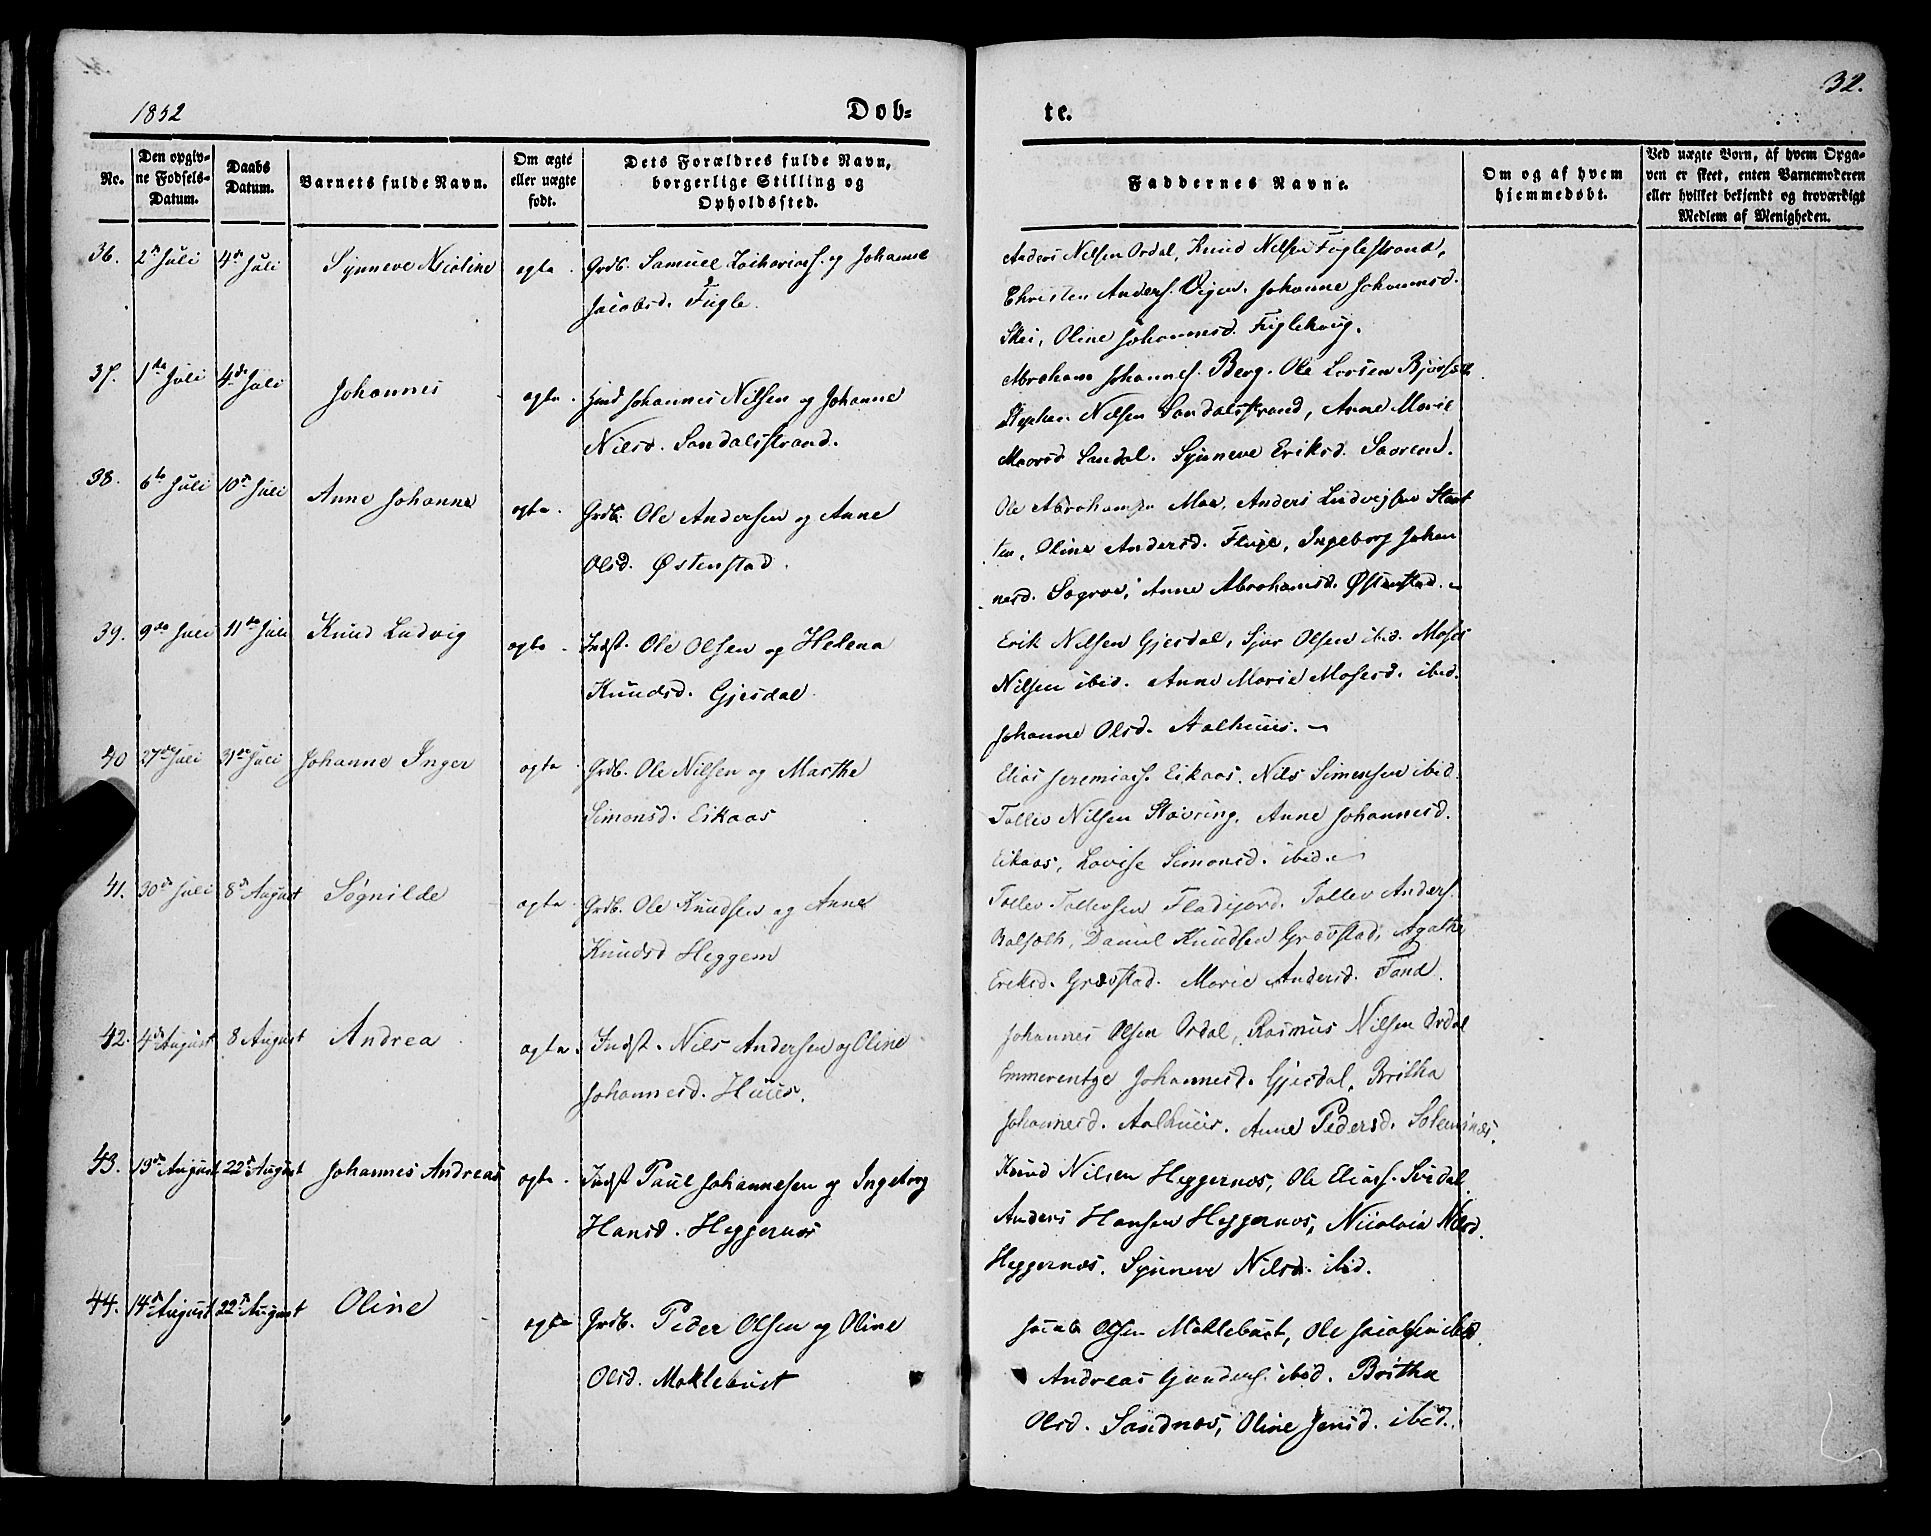 1852
Døb-
te.
32.
No.
Den opgiv-
ne Fødsels-
Datum.
Daabs
Datum.
Barnets fulde Navn.
Om ægte
eller uægte
født.
Dets Forældres fulde Navn,
borgerlige Stilling og
Opholdssted.
Faddernes Navne.
Om og af hvem
hjemmedøbt.
Ved uægte Børn, af hvem Opga-
ven er skeet, enten Barnemoderen
eller hvilket bekjendt og troværdigt
Medlem af Menigheden.
36. 2de Juli 4de Juli Synneve Nicoline ægte. Grdb. Samuel Zachariass. og Johanne
Jacobsd. Fugle.
Anders Nilsen Ordal, Knud Nilsen Fuglestrand,
Christen Anders. Vigen. Johanne Johannesd.
Skei, Oline Johannesd. Fuglehoug.
37. 1ste Juli 4de Juli Johannes ægte. Indst Johannes Nilsen og Johanne
Nilsd. Sandalsstrand.
Abraham Johannes. Berg. Ole Larsen
Stephen Nilsen Sandalsstrand, Anne Marie
Sandal. Synneve Eriksd. Saarend.
38. 6te Juli 10de Juli Anne Johanne ægte. Grdb. Ole Andersen og Anne
Olsd. Østenstad.
Ole Abrahamsen Moe, Anders Ludvigsen
Oline Andersd. Fluge, Ingeborg Johan
nesd. Søgrov, Anne Abrahamsd. Østenstad.
39. 9de Juli 11te Juli Knud Ludvig ægte. Indst. Ole Olsen og Helena
Knudsd. Gjesdal.
Erik Nilsen Gjesdal, Sjur Olsen ibid. Moses
Nilsen ibid. Anne Marie Mosesd. ibid.
Johanne Olsd. Aalhuus.
40 27de Juli 31te Juli Johanne Inger ægte. Grdb. Ole Nilsen og Marthe
Simonsd. Eikaas
Elias Jeremiass. Eikaas. Nils Simonsen ibid.
Tollev Nilsen Støvring. Anne Johannesd.
Eikaas, Lovise Simonsd. ibid.
41. 30te Juli 8de August Søgnilde ægte. Grdb. Ole Knudsen og Anne
Knudsd Heggem
Tollev Tollevsen Fladijord. Tollev Anders.
Bolsæth, Daniel Knudsen Grøvstad, Agathe
Eriksd. Grøvstad. Marie Andersd. Fond.
42. 4de August 8 August Andrea ægte. Indst. Nils Andersen og Oline
Johannesd. Huus.
Johannes Olsen Ordal, Rasmus Nilsen Ordal
Emmerentze Johannesd. Gjesdal, Britha
Johannesd. Aalhuus. Anne Pedersd. Solemsnæs.
43. 19de August 22de August Johannes Andreas ægte. Indst Paul Johannesen og Ingeborg
Hansd. Heggernæs
Knud Nilsen Heggernæs, Ole Eliass. Svidal.
Anders Hansen Heggernæs, Nicolvia Nilsd.
Heggernæs. Synneve Nilsd. ibid.
44. 14de August 22de August Oline ægte Grdb. Peder Olsen og Oline
Olsd. Møklebust
Jacob Olsen Møklebust, Ole Jacobsen ibid.
Andreas Gunders. ibid. Britha
Olsd. Sandnæs, Oline Jensd. ibid.